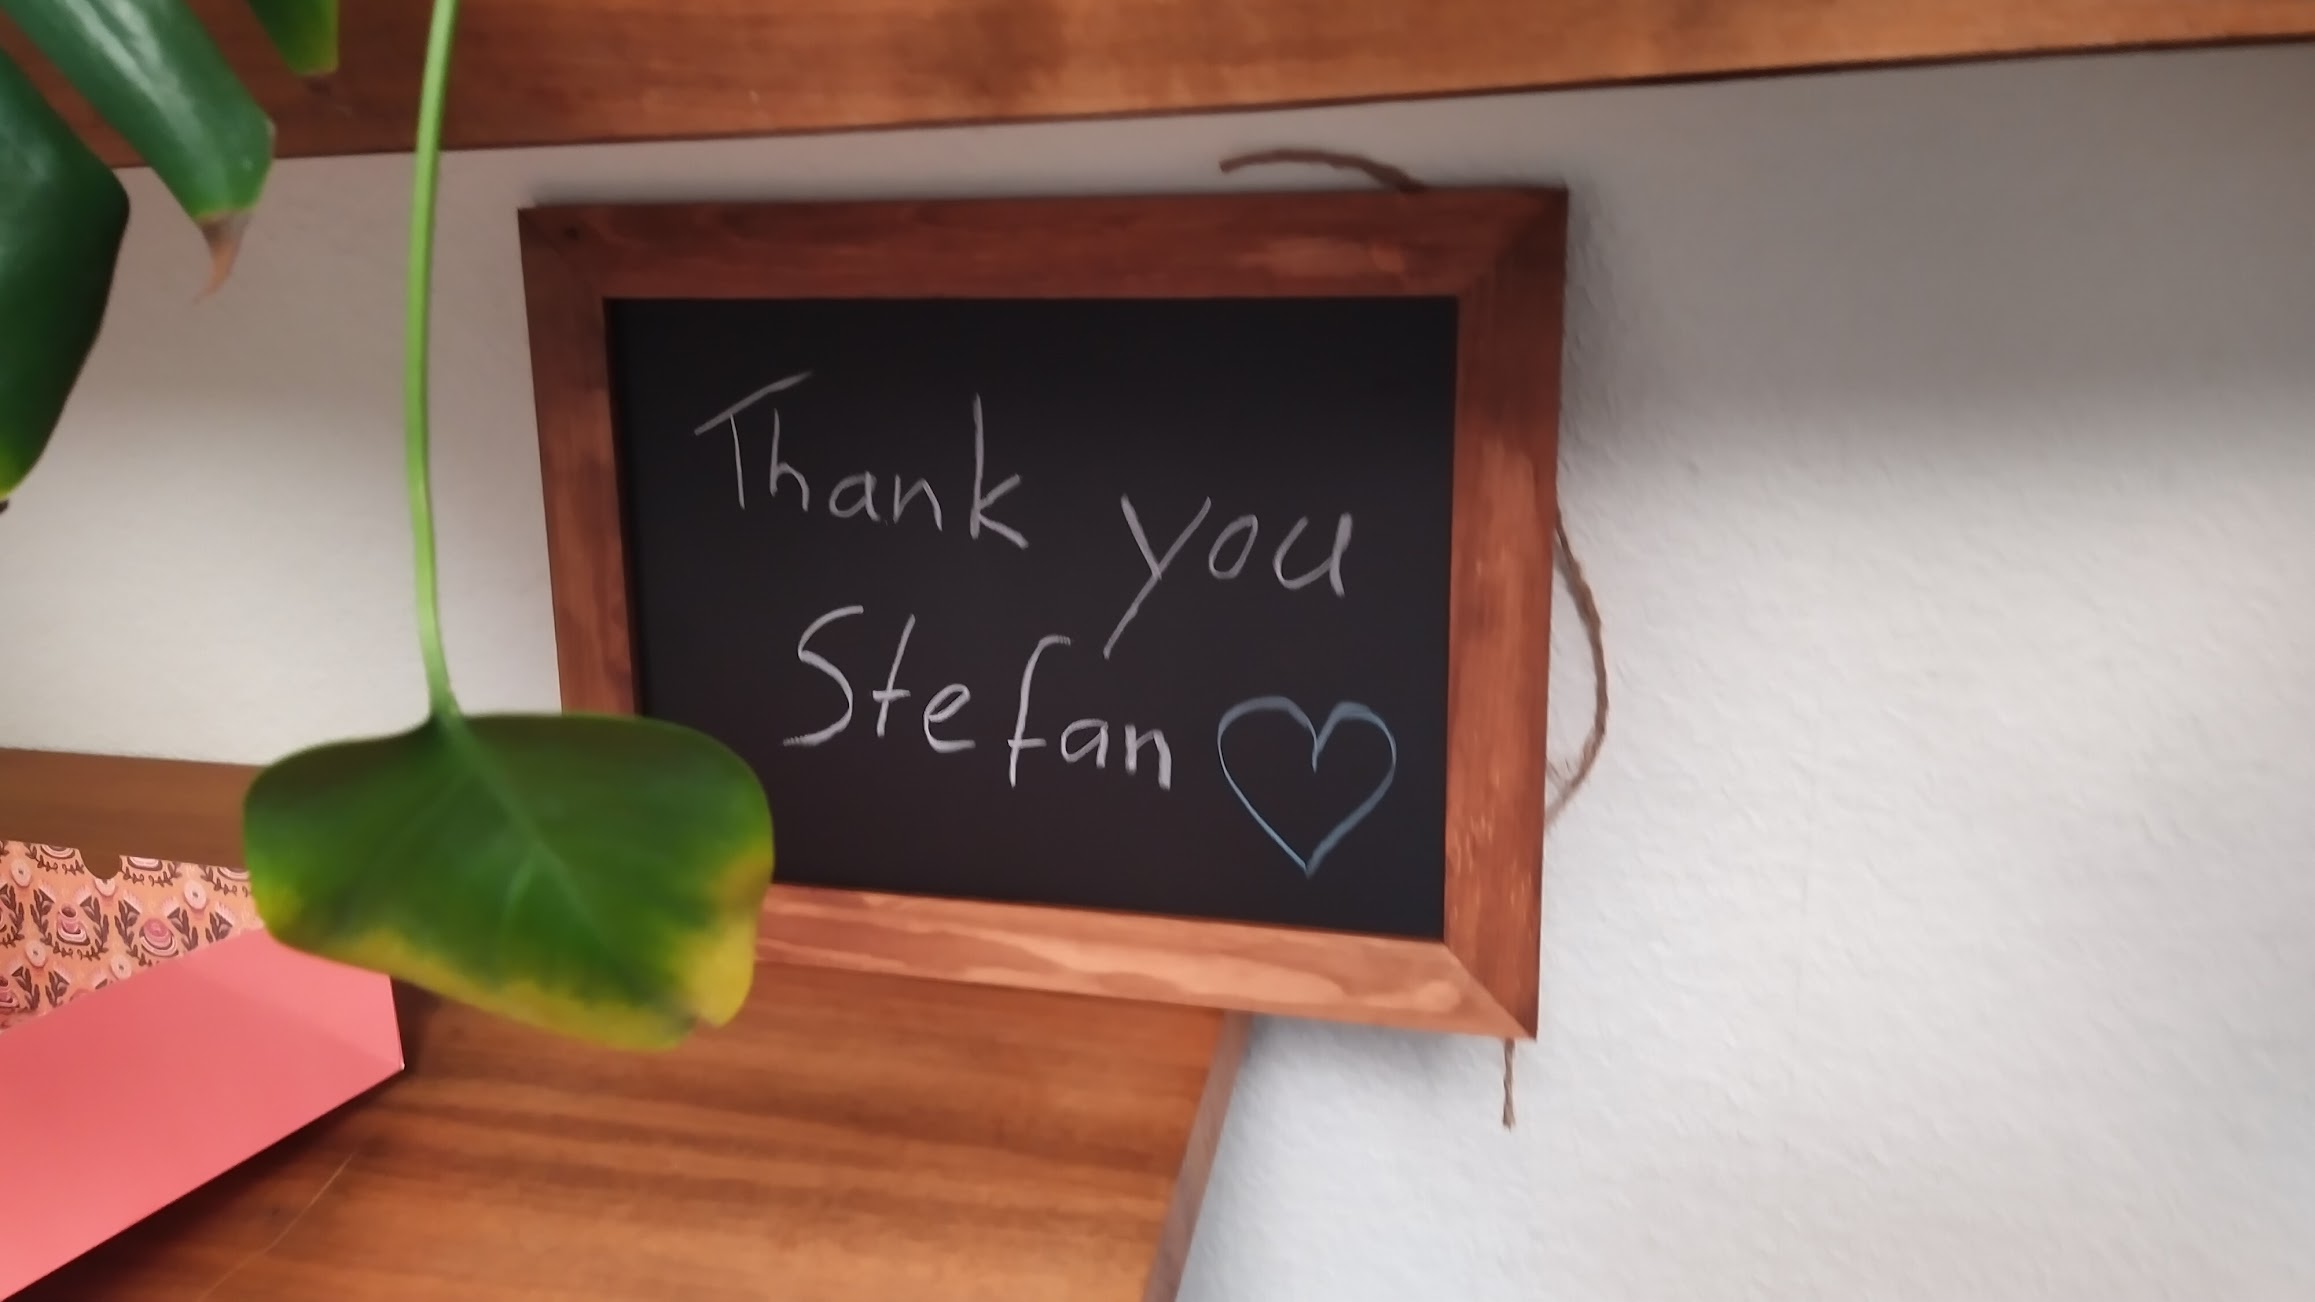 Thank you
Stefan